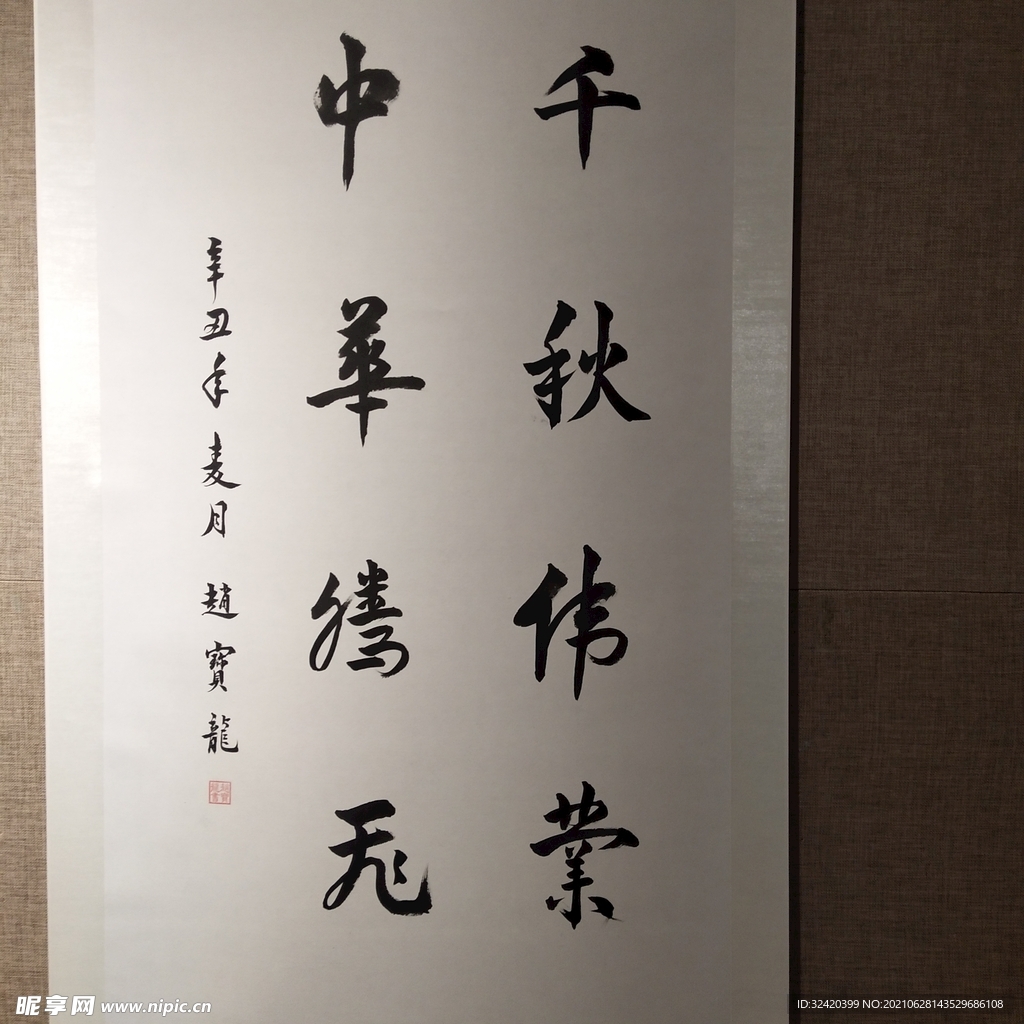 千秋伟業
中華騰飛
辛丑年麦月 趙寶龍
昵享网 www.nipic.cn
ID:32420399 NO:20210628143529686108